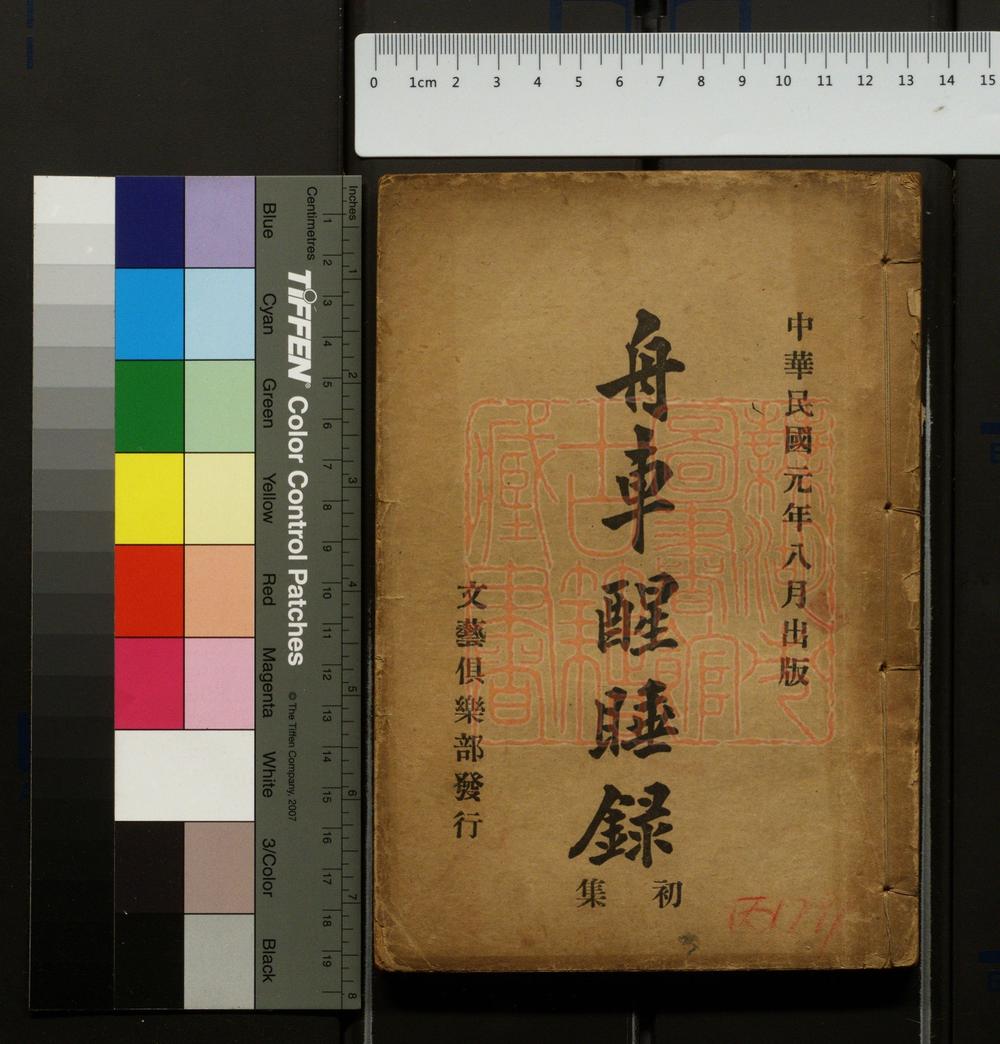 0 1cm 2 3 4 5 6 7 8 9 10 11 12 13 14 15
中華民國元年八月出版
舟車醒睡録
初集
文藝俱樂部發行
Inches
Centimetres
1 2 3 4 5 6 7 8
1 2 3 4 5 6 7 8 9 10 11 12 13 14 15 16 17 18 19
TIFFEN® Color Control Patches
© The Tiffen Company, 2007
Blue
Cyan
Green
Yellow
Red
Magenta
White
3/Color
Black